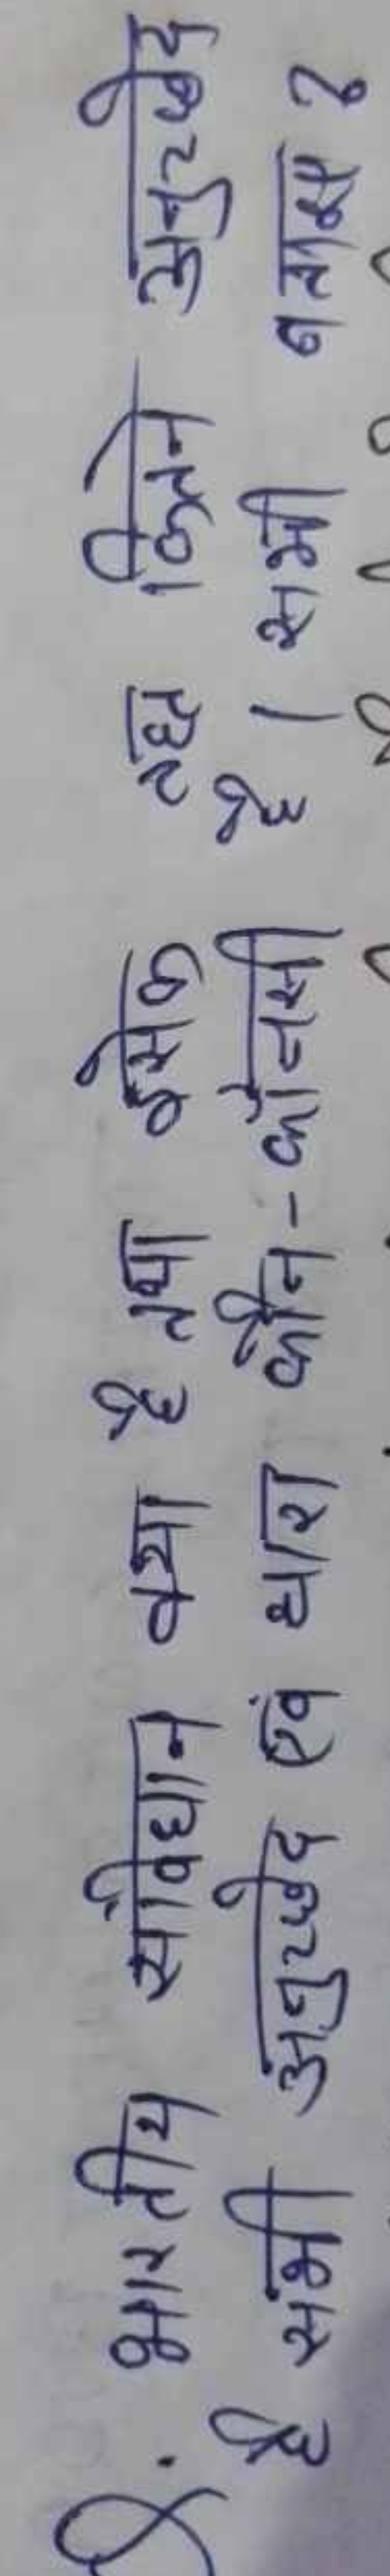 Q. भारतीय संविधान क्या है तथा इसके तहत कितने अनुच्छेद
है सभी अनुच्छेद एवं धारा कौन-कौनसी है। सभी बताइए?